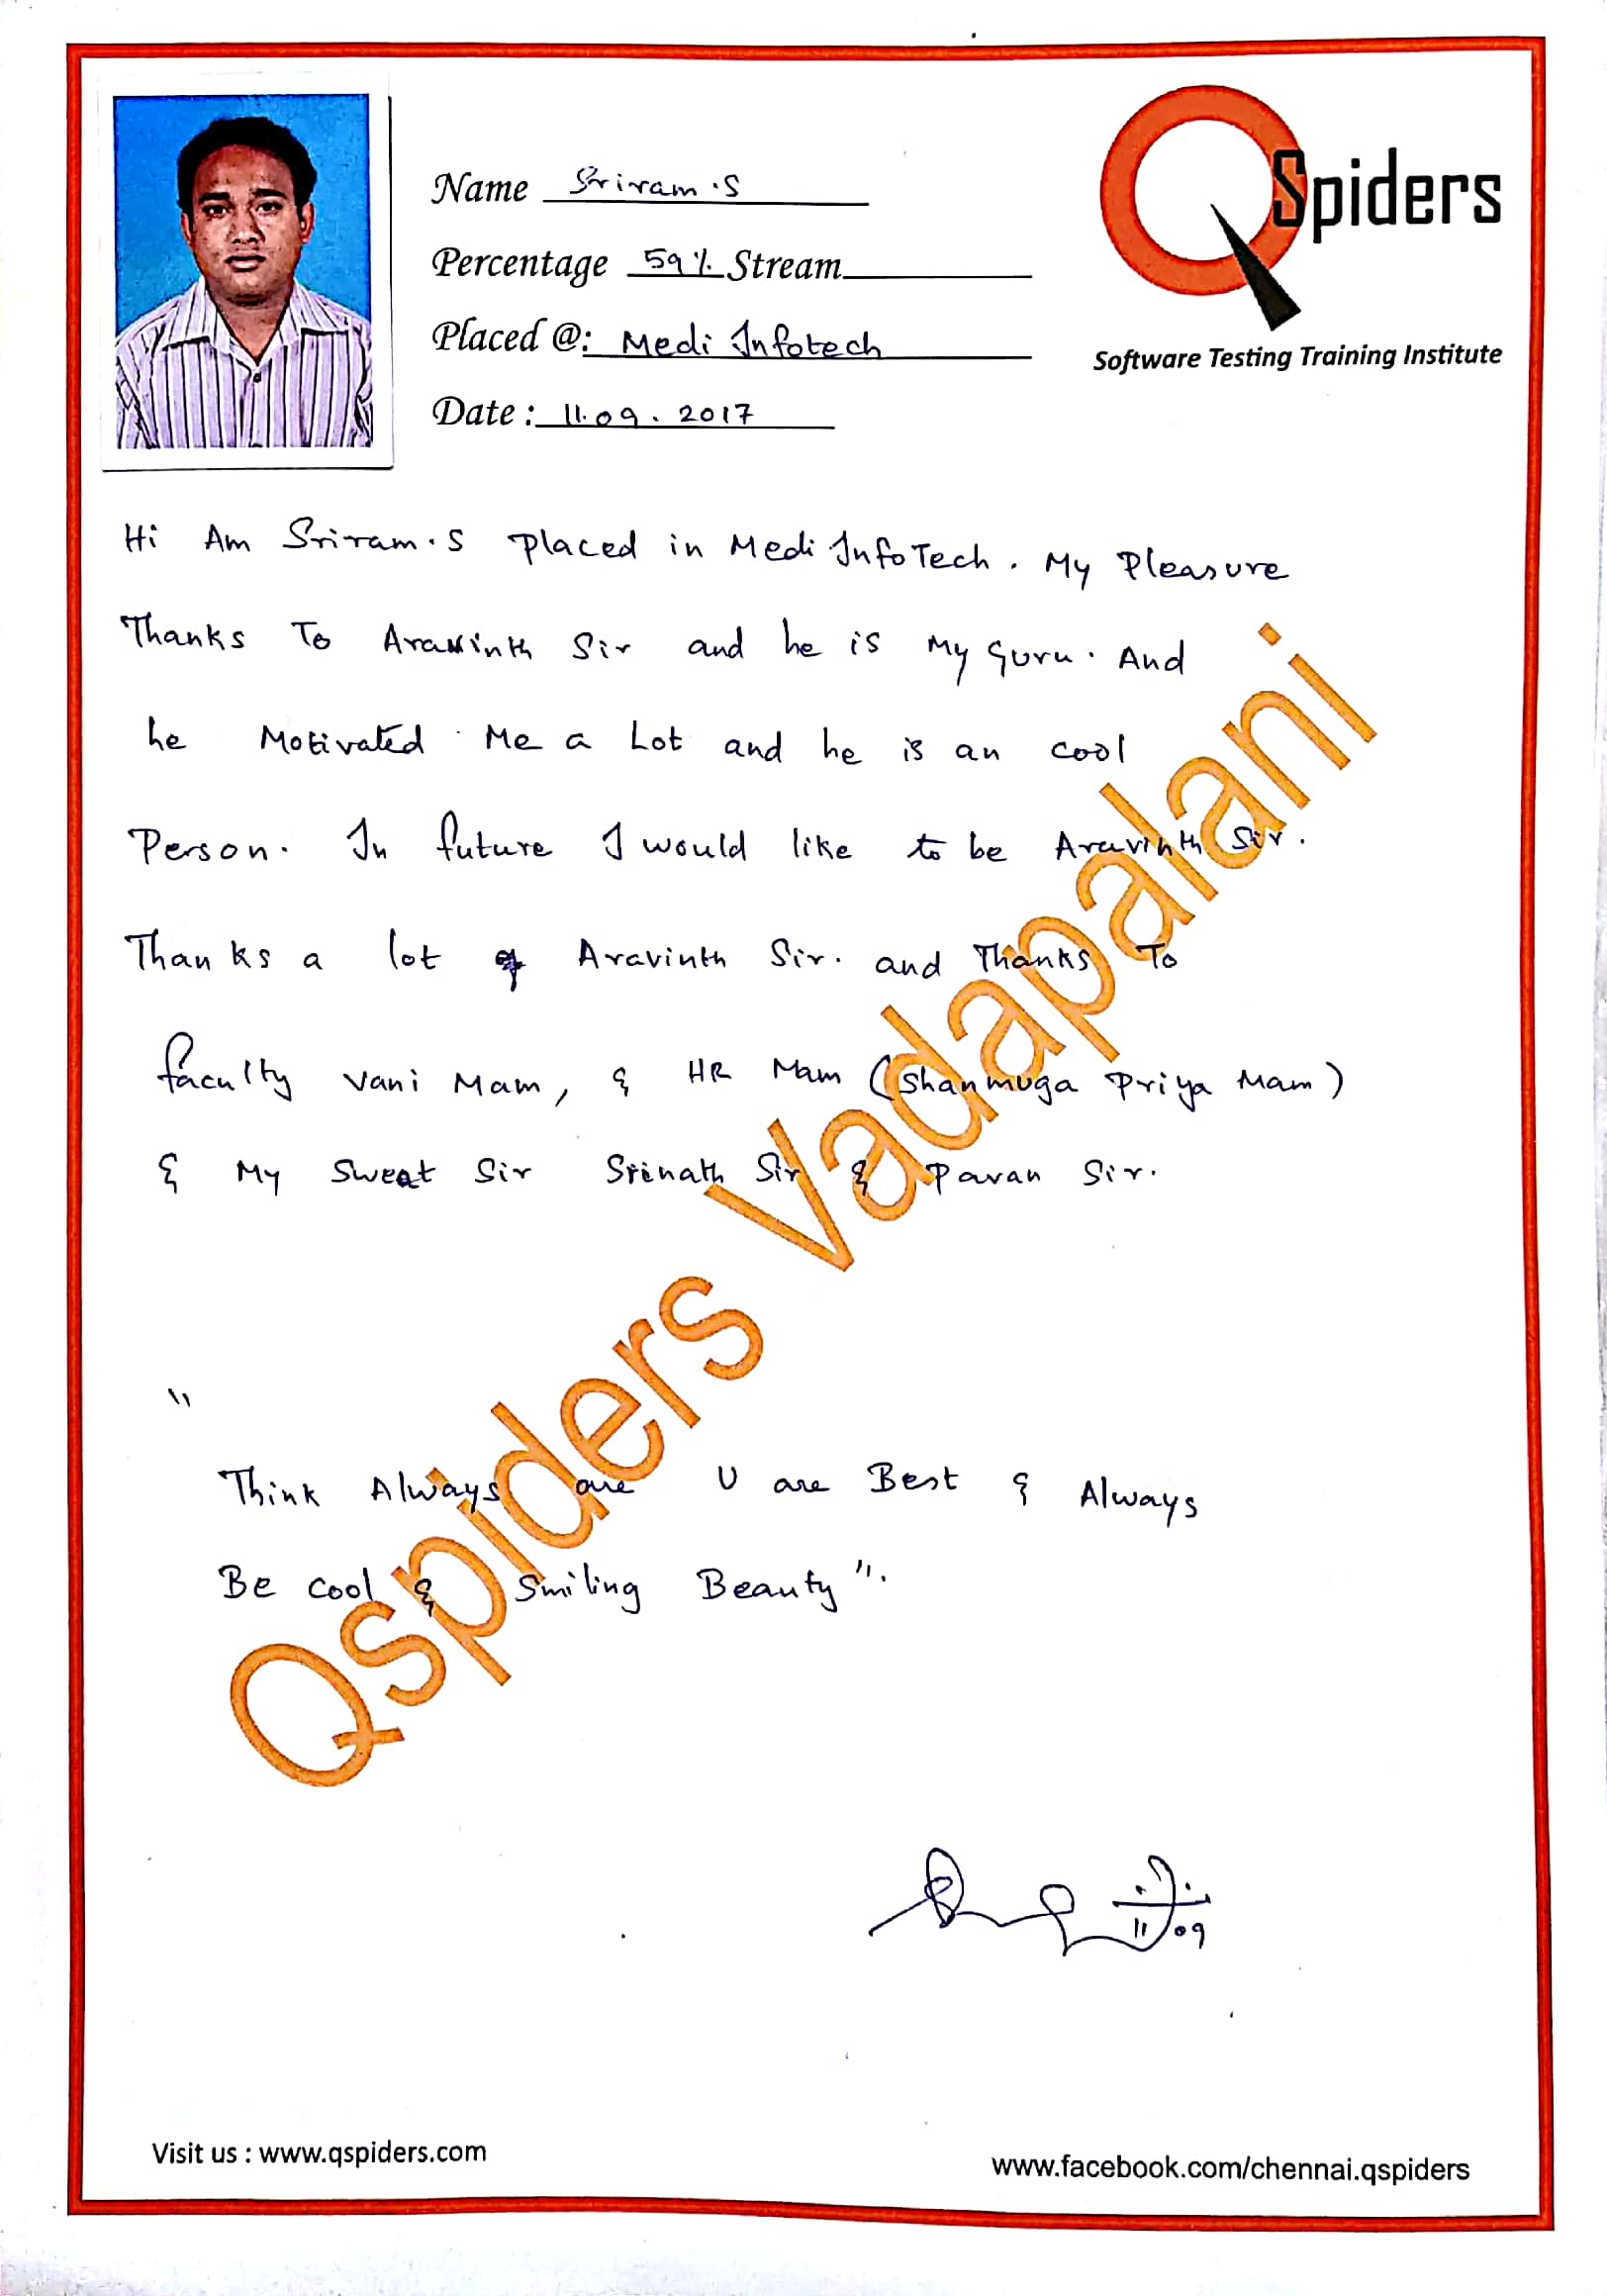 QSpiders
Software Testing Training Institute
Name Sriram.S
Percentage 59% Stream
Placed @: Medi Infotech
Date : 11.09.2017
Hi Am Sriram.S Placed in Medi InfoTech. My Pleasure
Thanks To Aravinth Sir and he is My Guru. And
he Motivated Me a Lot and he is an cool
Person. In future I would like to be Aravinth Sir.
Thanks a lot of Aravinth Sir. and Thanks To
faculty Vani Mam, & HR Mam (Shanmuga Priya Mam)
& My Sweat Sir Srinath Sir & Pavan Sir.
"
Think Always are U are Best & Always
Be cool & Smiling Beauty".
Qspiders Vadapalani
11/09
Visit us : www.qspiders.com
www.facebook.com/chennai.qspiders